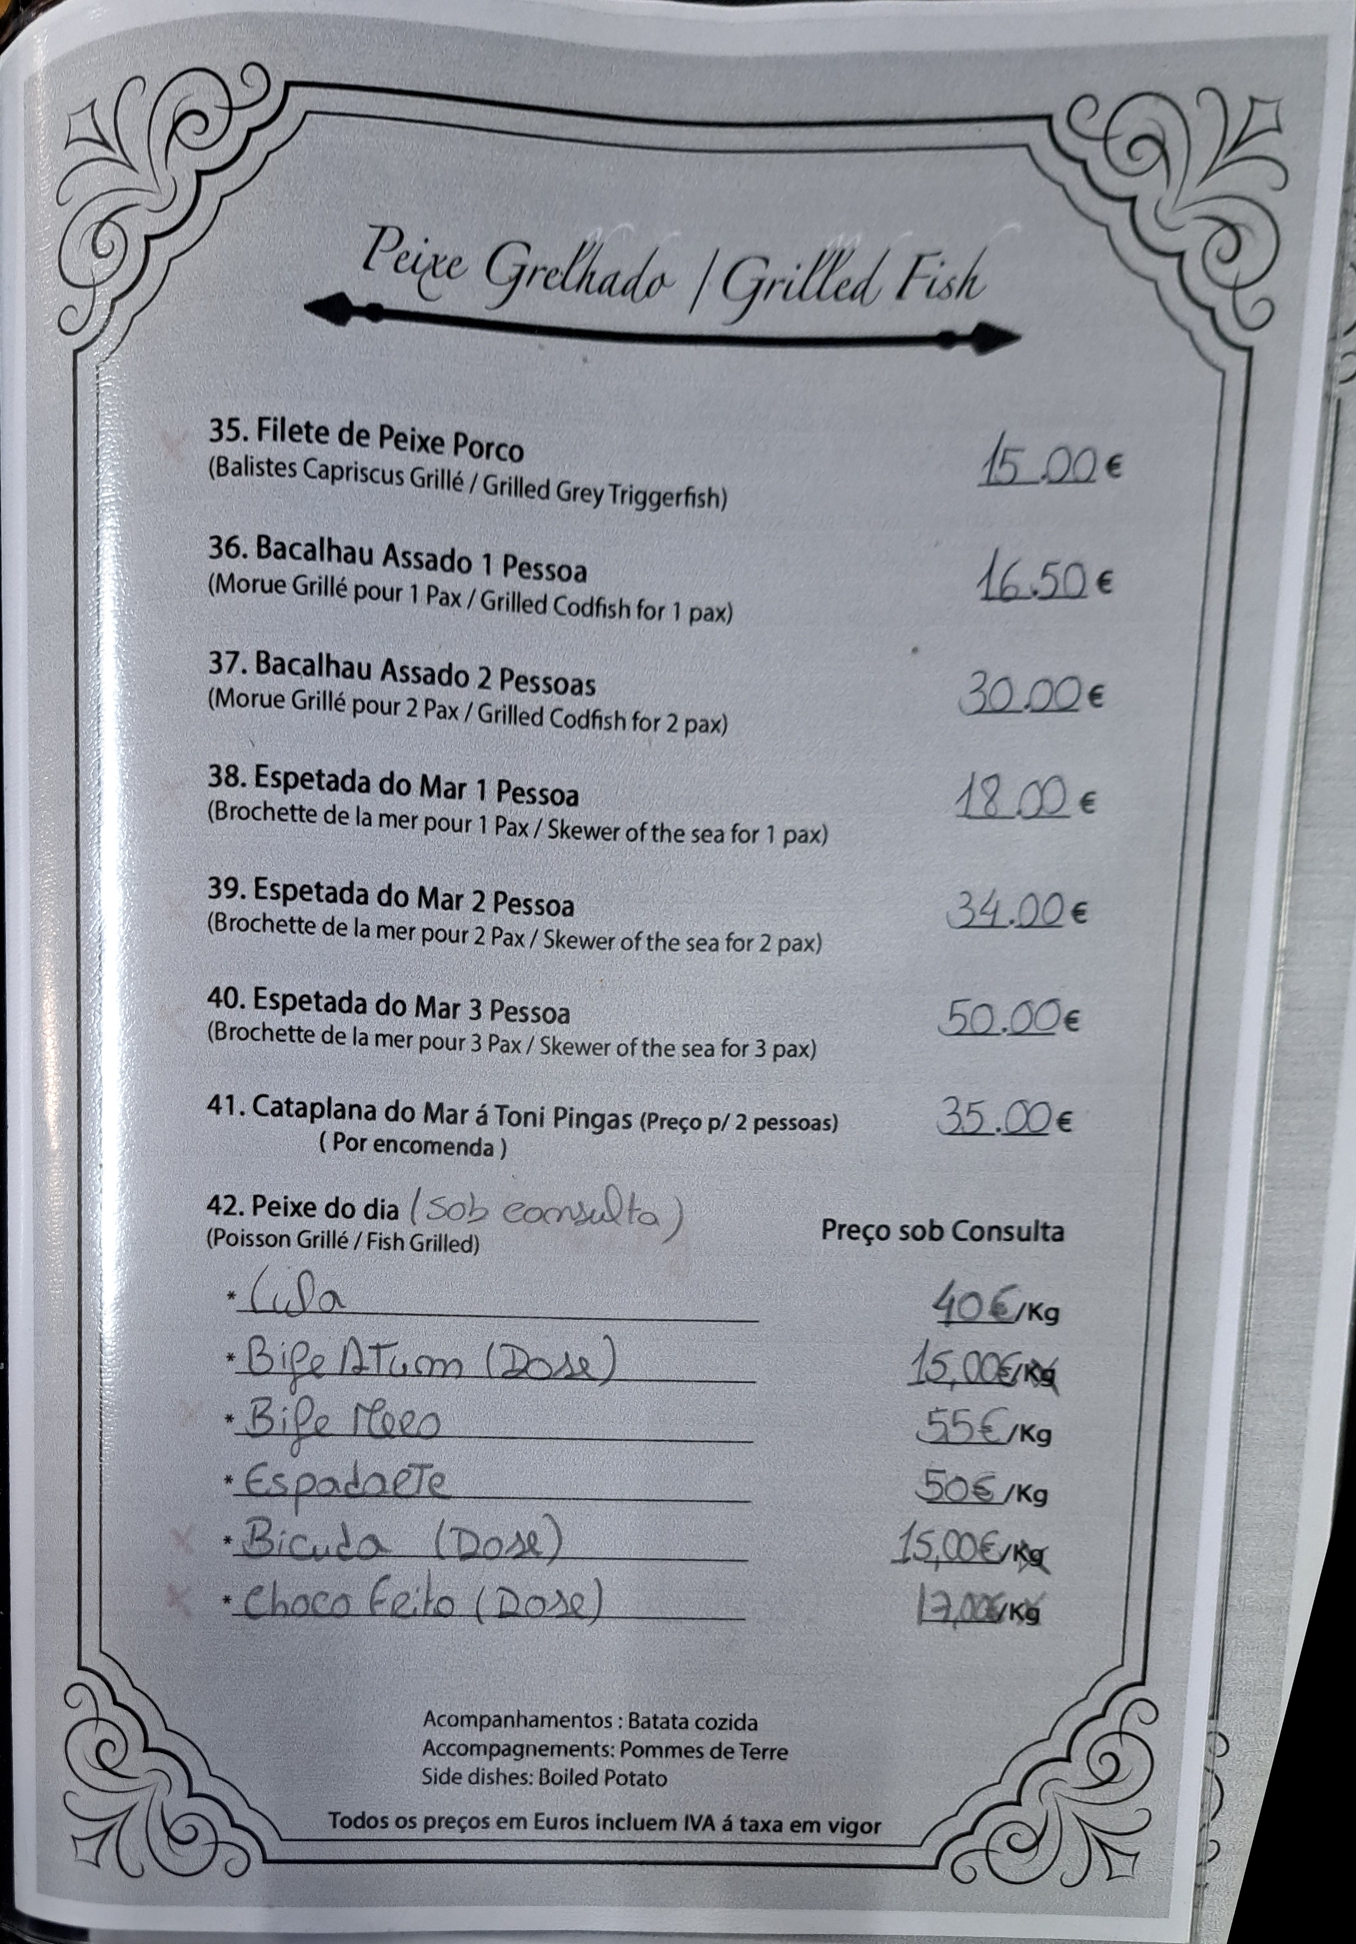 Peixe Grelhado / Grilled Fish
35. Filete de Peixe Porco 15.00 €
(Balistes Capriscus Grillé / Grilled Grey Triggerfish)
36. Bacalhau Assado 1 Pessoa 16.50 €
(Morue Grillé pour 1 Pax / Grilled Codfish for 1 pax)
37. Bacalhau Assado 2 Pessoas 30.00 €
(Morue Grillé pour 2 Pax / Grilled Codfish for 2 pax)
38. Espetada do Mar 1 Pessoa 18.00 €
(Brochette de la mer pour 1 Pax / Skewer of the sea for 1 pax)
39. Espetada do Mar 2 Pessoa 34.00 €
(Brochette de la mer pour 2 Pax / Skewer of the sea for 2 pax)
40. Espetada do Mar 3 Pessoa 50.00 €
(Brochette de la mer pour 3 Pax / Skewer of the sea for 3 pax)
41. Cataplana do Mar á Toni Pingas (Preço p/ 2 pessoas) 35.00 €
( Por encomenda )
42. Peixe do dia (sob consulta) Preço sob Consulta
(Poisson Grillé / Fish Grilled)
* Lula 40€/Kg
* Bife Atum (Dose) 15,00€/Kg
* Bife Mero 55€/Kg
* Espadarte 50€/Kg
* Bicuda (Dose) 15,00€/Kg
* Choco Frito (Dose) 17,00€/Kg
Acompanhamentos : Batata cozida
Accompagnements: Pommes de Terre
Side dishes: Boiled Potato
Todos os preços em Euros incluem IVA á taxa em vigor